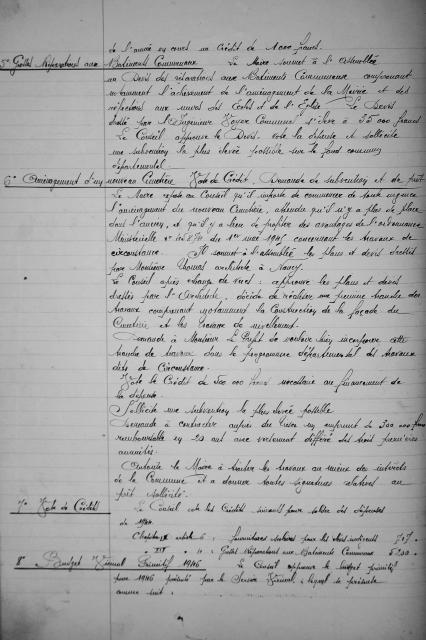 de l'année en cours un Crédit de 1000 francs.
5° Grosses Réparations aux Batiments Communaux Le Maire soumet à l'Assemblée
un Devis des réparations aux Batiments Communaux comprenant
notamment l'achèvement de l'aménagement de la Mairie et des
réfections aux murs des Ecoles et de l'Eglise. Le Devis
dressé par l'Ingénieur Voyer Communal s'élève à 35000 francs
Le Conseil approuve le Devis, vote la dépense et sollicite
une subvention la plus élevée possible sur le fond commun
départemental.
6° Aménagement d'un nouveau Cimetière Vote de Crédit. Demande de subvention et de prêt
Le Maire expose au Conseil qu'il importe de commencer de toute urgence
l'aménagement du nouveau Cimetière, attendu qu'il n'y a plus de place
dans l'ancien, et qu'il y a lieu de profiter des avantages de l'ordonnance
Ministérielle du 1er mai 1945 concernant les travaux de
circonstance. Il soumet à l'assemblée les plans et devis dressés
par Monsieur Thomas architecte à Nancy.
Le Conseil après échange de vues : approuve les plans et devis
dressés par l'Architecte, décide de réaliser une première tranche des
travaux comprenant notamment la Construction de la façade du
Cimetière et les travaux de nivellement.
Demande à Monsieur Le Préfet de vouloir bien incorporer cette
tranche de travaux dans le programme départemental des travaux
dits de Circonstance.
Vote le Crédit de 500 000 francs nécessaire au financement de
la dépense.
Sollicite une subvention la plus élevée possible
Demande à contracter auprès du un emprunt de 300 000 frs
remboursable en 20 ans avec versement différé des trois premières
annuités.
Autorise le Maire à traiter les travaux au mieux des intérêts
de la Commune et à donner toutes signatures relatives au
prêt sollicité.
7° Vote de Crédits Le Conseil vote les Crédits suivants pour solder des dépenses
de 1944
Chapitre article 6 : fournitures scolaires pour les élèves indigents 707.
XIV 10 : Grosses Réparations aux Batiments Communaux 5200
8° Budget Primitif 1946 Le Conseil approuve le budget primitif
pour 1946 présenté par le Service
comme suit :